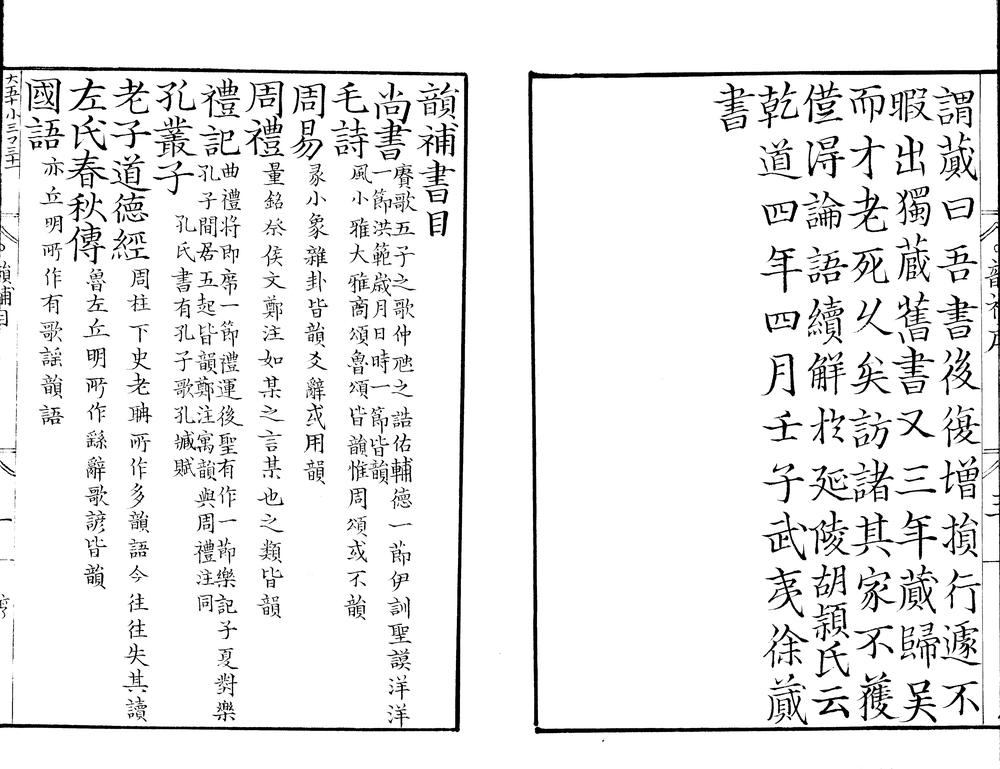 謂蕆曰吾書後復增損行遽不
暇出獨蔵舊書又三年蕆歸吴
而才老死乆矣訪諸其家不獲
僅淂論語續解扵延陵胡穎氏云
乾道四年四月壬子武夷徐蕆
書
韻補書目
尚書
賡歌五子之歌仲虺之誥佑輔德一節伊訓聖謨洋洋
一節洪範歲月日時一節皆韻
毛詩
風小雅大雅商頌魯頌皆韻惟周頌或不韻
周易
彖小象雜卦皆韻爻辭或用韻
周禮
量銘祭侯文鄭注如某之言某也之類皆韻
禮記
曲禮将即席一節禮運後聖有作一節樂記子夏對樂
孔子閒居五起皆韻鄭注寓韻與周禮注同
孔叢子
孔氏書有孔子歌孔臧賦
老子道德經
周柱下史老聃所作多韻語今往往失其讀
左氏春秋傳
魯左丘明所作繇辭歌諺皆韻
國語
亦丘明所作有歌謡韻語
韻補目
一